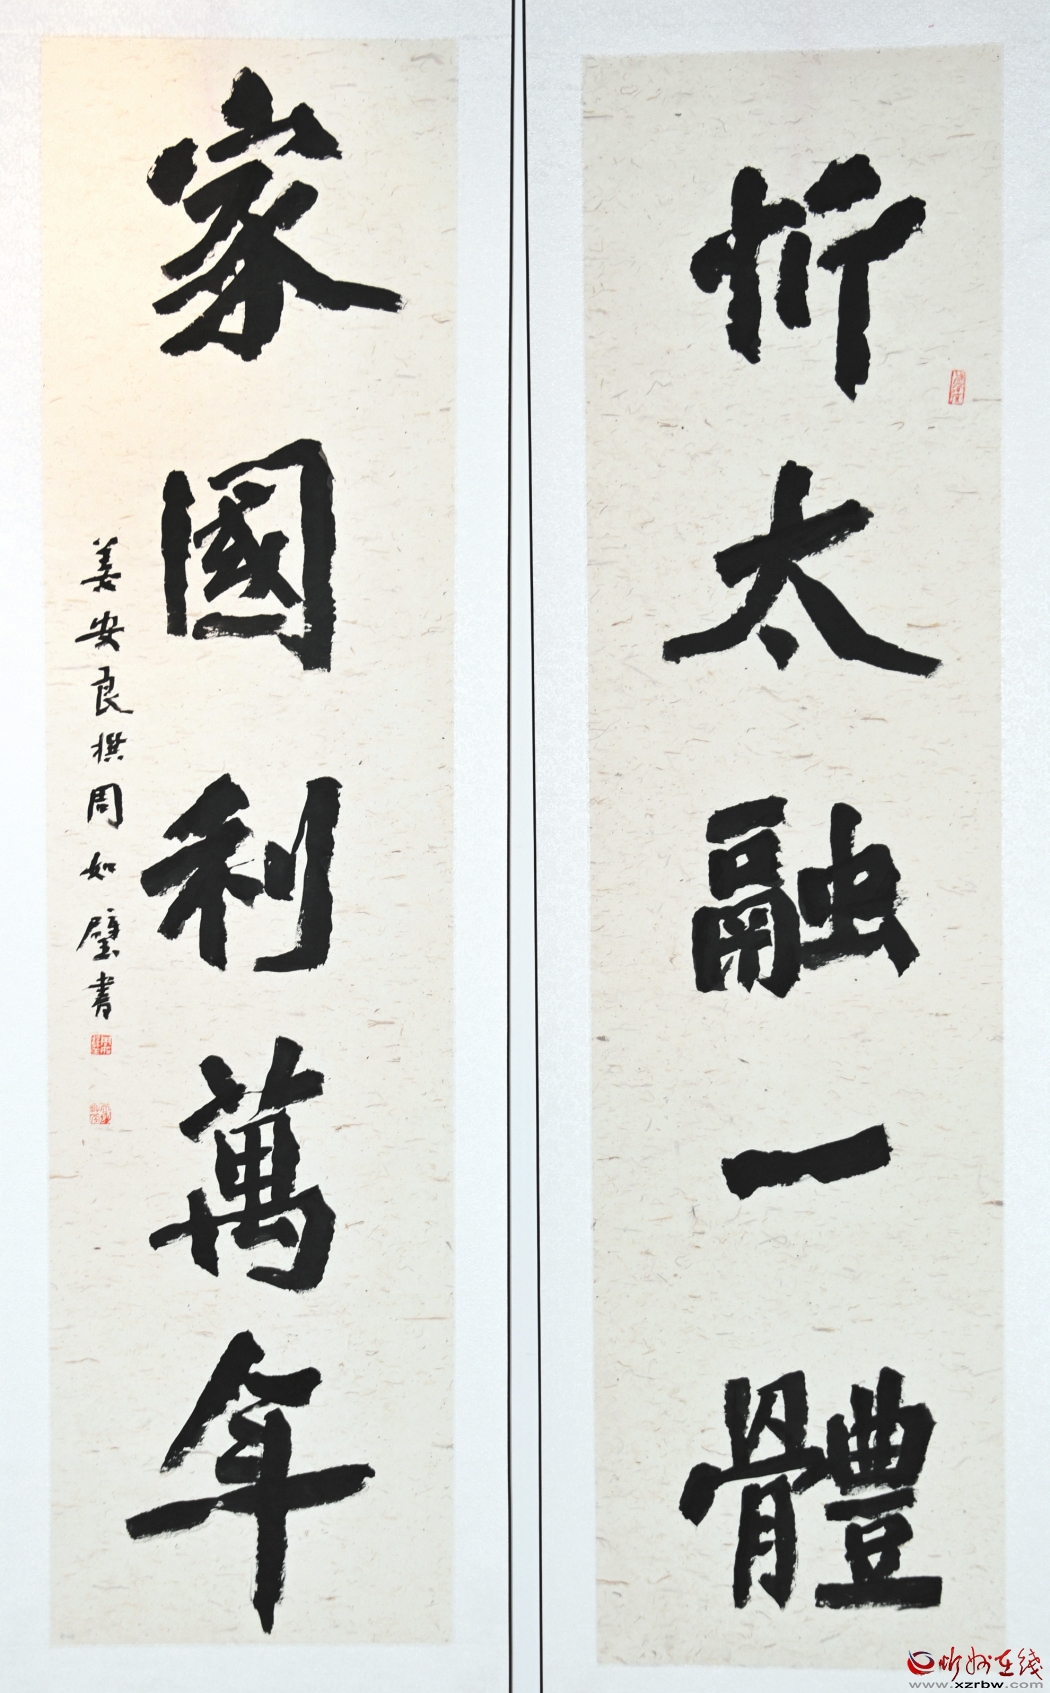 忻太融一體
家國利萬年
姜安良撰周如璧書
忻州在线
www.xzrbw.com